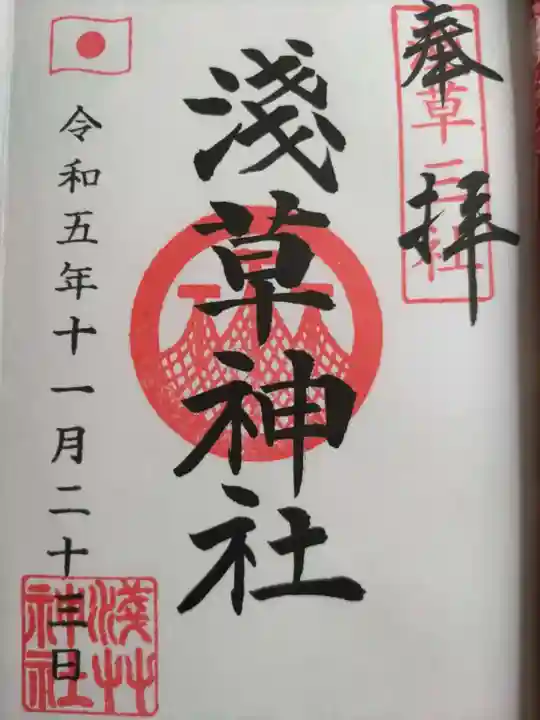 奉拝
淺草三社
淺草神社
令和五年十一月二十三日
淺艸神社